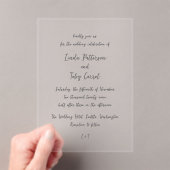 Kindly join us
for the wedding celebration of
Linda Patterson
and
Toby Carrol
Saturday, the fifteenth of November
two thousand twenty
half after three in the afternoon
The Wedding Hotel Seattle, Washington
Reception to follow